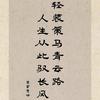 轻装策马青云路
人生从此驭长风